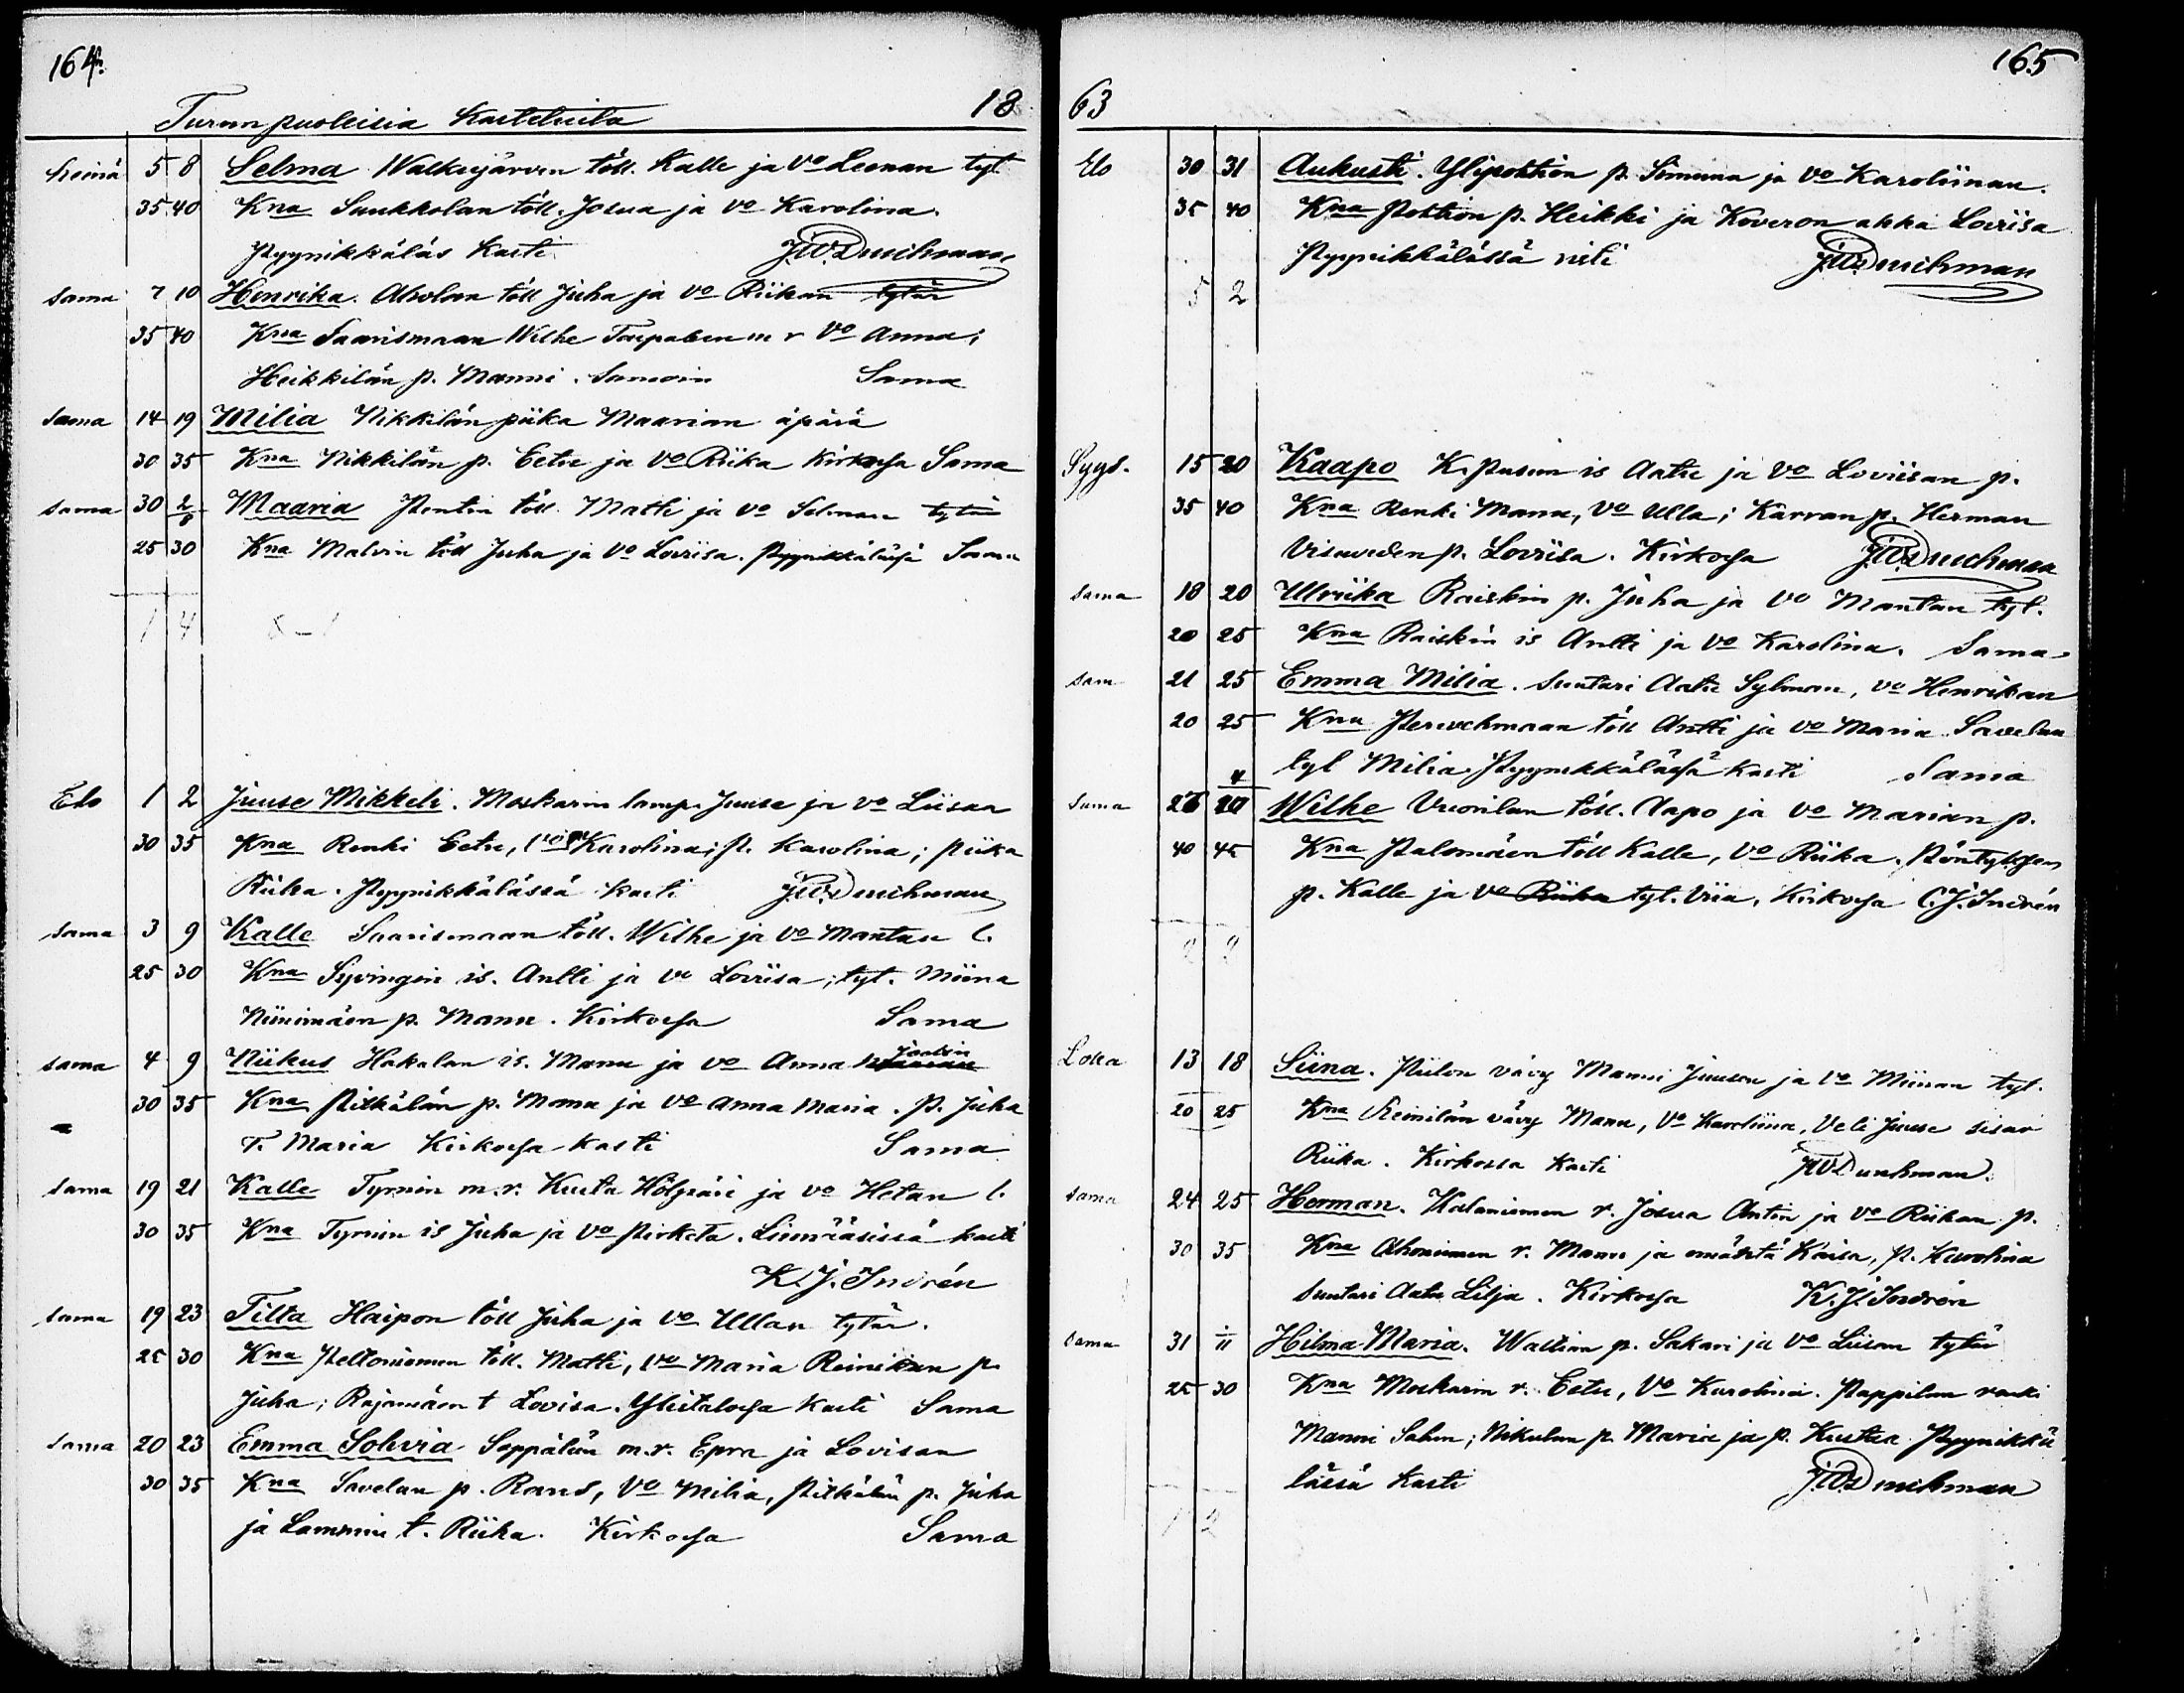 164.
Turun puoleisia Kasteluita 18
Heinä 5 8 Selma Walkejärven töll. Kalle ja Vo Leenan tyt
35 40 Kna Suukkolan töll. Josua ja Vo Karolina.
Pyynikkäläs kasti J.W.Duuchman
Sama 7 10 Henrika. Aholan töll Juha ja Vo Riikan tytär
35 40 Kna Saarismaan Wilhe m r Vo Anna;
Heikkilän p. Manni. Samoin Sama
Sama 14 19 Milia Nikkilän piika Maarian äpärä
30 35 Kna Nikkilän p. Eetu ja Vo Riika Kirkossa Sama
Sama 30 2/8 Maaria Pentin töll Matti ja Vo Selman tytär
25 30 Kna Malvin töll Juha ja Vo Loviisa. Pyynikkälässä Sama
1 4
Elo 1 2 Juuse Mikkeli. Moskarin lamp. Juuse ja Vo Liisan
30 35 Kna Renki Eetu, Vo Karolina; p. Karolina; piika
Riika. Pyynikkälässä kasti J.W.Duuchman
Sama 3 9 Kalle Saarismaan töll. Wilhe ja Vo Mantan l.
25 30 Kna Syvingin is. Antti ja Vo Loviisa; tyt. Miina
Niinimäen p. Manu. Kirkossa Sama
Sama 4 9 Niikus Hakalan is. Manu ja Vo Anna
30 35 Kna Pitkälän p. Manu ja Vo Anna Maria. P. Juha
T. Maria Kirkossa kasti Sama
Sama 19 21 Kalle Tyrnin m.r. Kusta Hölpäsi ja Vo Hetan l.
30 35 Kna Tyrnin is Juha ja Vo Pirketa. Linnääsissä kasti
K.J. Indrén
Sama 19 23 Tilta Haipon töll Juha ja Vo Ullan tytär.
25 30 Kna Peltoniemen töll. Matti, Vo Maria Reinikan p.
Juha; Rajamäen t Lovisa. Ylistalossa kasti Sama
Sama 20 23 Emma Sohvia Seppälän m.r. Epra ja Lovisan
30 35 Kna Savelan p. Rans, Vo Milia, Pitkälän p. Juha
ja Lammin t. Riika. Kirkossa Sama
165
63
Elo 30 31 Aukusti. Ylipohtion p. Simuna ja Vo Karoliinan.
35 40 Kna Pohtion p. Heikki ja Koveron akka Loviisa
Pyynikkälässä J.W.Duuchman
5 2
Syys. 15 20 Kaapo K. is Aatu ja Vo Loviisan p.
35 40 Kna Renki Manu, Vo Ulla; Karran p. Herman
Visaveden p. Loviisa. Kirkossa J.W.Duuchman
Sama 18 20 Ulriika Raiskin p. Juha ja Vo Mantan tyt.
20 25 Kna Raiskin is Antti ja Vo Karolina. Sama
Sam 21 25 Emma Milia. Suutari Aatu Sylman, Vo Henrikan
20 25 Kna töll Antti ja Vo Maria. Savelan
tyt Milia. Pyynikkälässä kasti Sama
Sama 26 27 Wilhe Vuorilan töll. Aapo ja Vo Marian p.
40 45 Kna Palomäen töll Kalle, Vo Riika.
p. Kalle ja Vo Riika tyt. Viia, Kirkossa C.J. Indrén
2 2
Loka 13 18 Siina. Piilon vävy Manni Juusen ja Vo Miinan tyt.
20 25 Kna Heinilän vävy Manu, Vo Karoliina, Veli Juuse sisar
Riika. Kirkossa kasti J.W.Duuchman.
Sama 24 25 Herman. Kalaniemen r. Josua Antin ja Vo Riikan p.
30 35 Kna Ahoniemen r. Manu ja emäntä Kaisa, p. Karolina
Suutari Aatu Lilja. Kirkossa K.J. Indrén
Sama 31 1/11 Hilma Maria. Wallian p. Sakari ja Vo Liisan tytär
25 30 Kna Moskarin r. Eetu, Vo Karolina. Pappilan renki
Manni Salm; Nikulan p. Maria ja p. Kustaa Pyynikkä
lässä kasti J.W.Duuchman
1 2